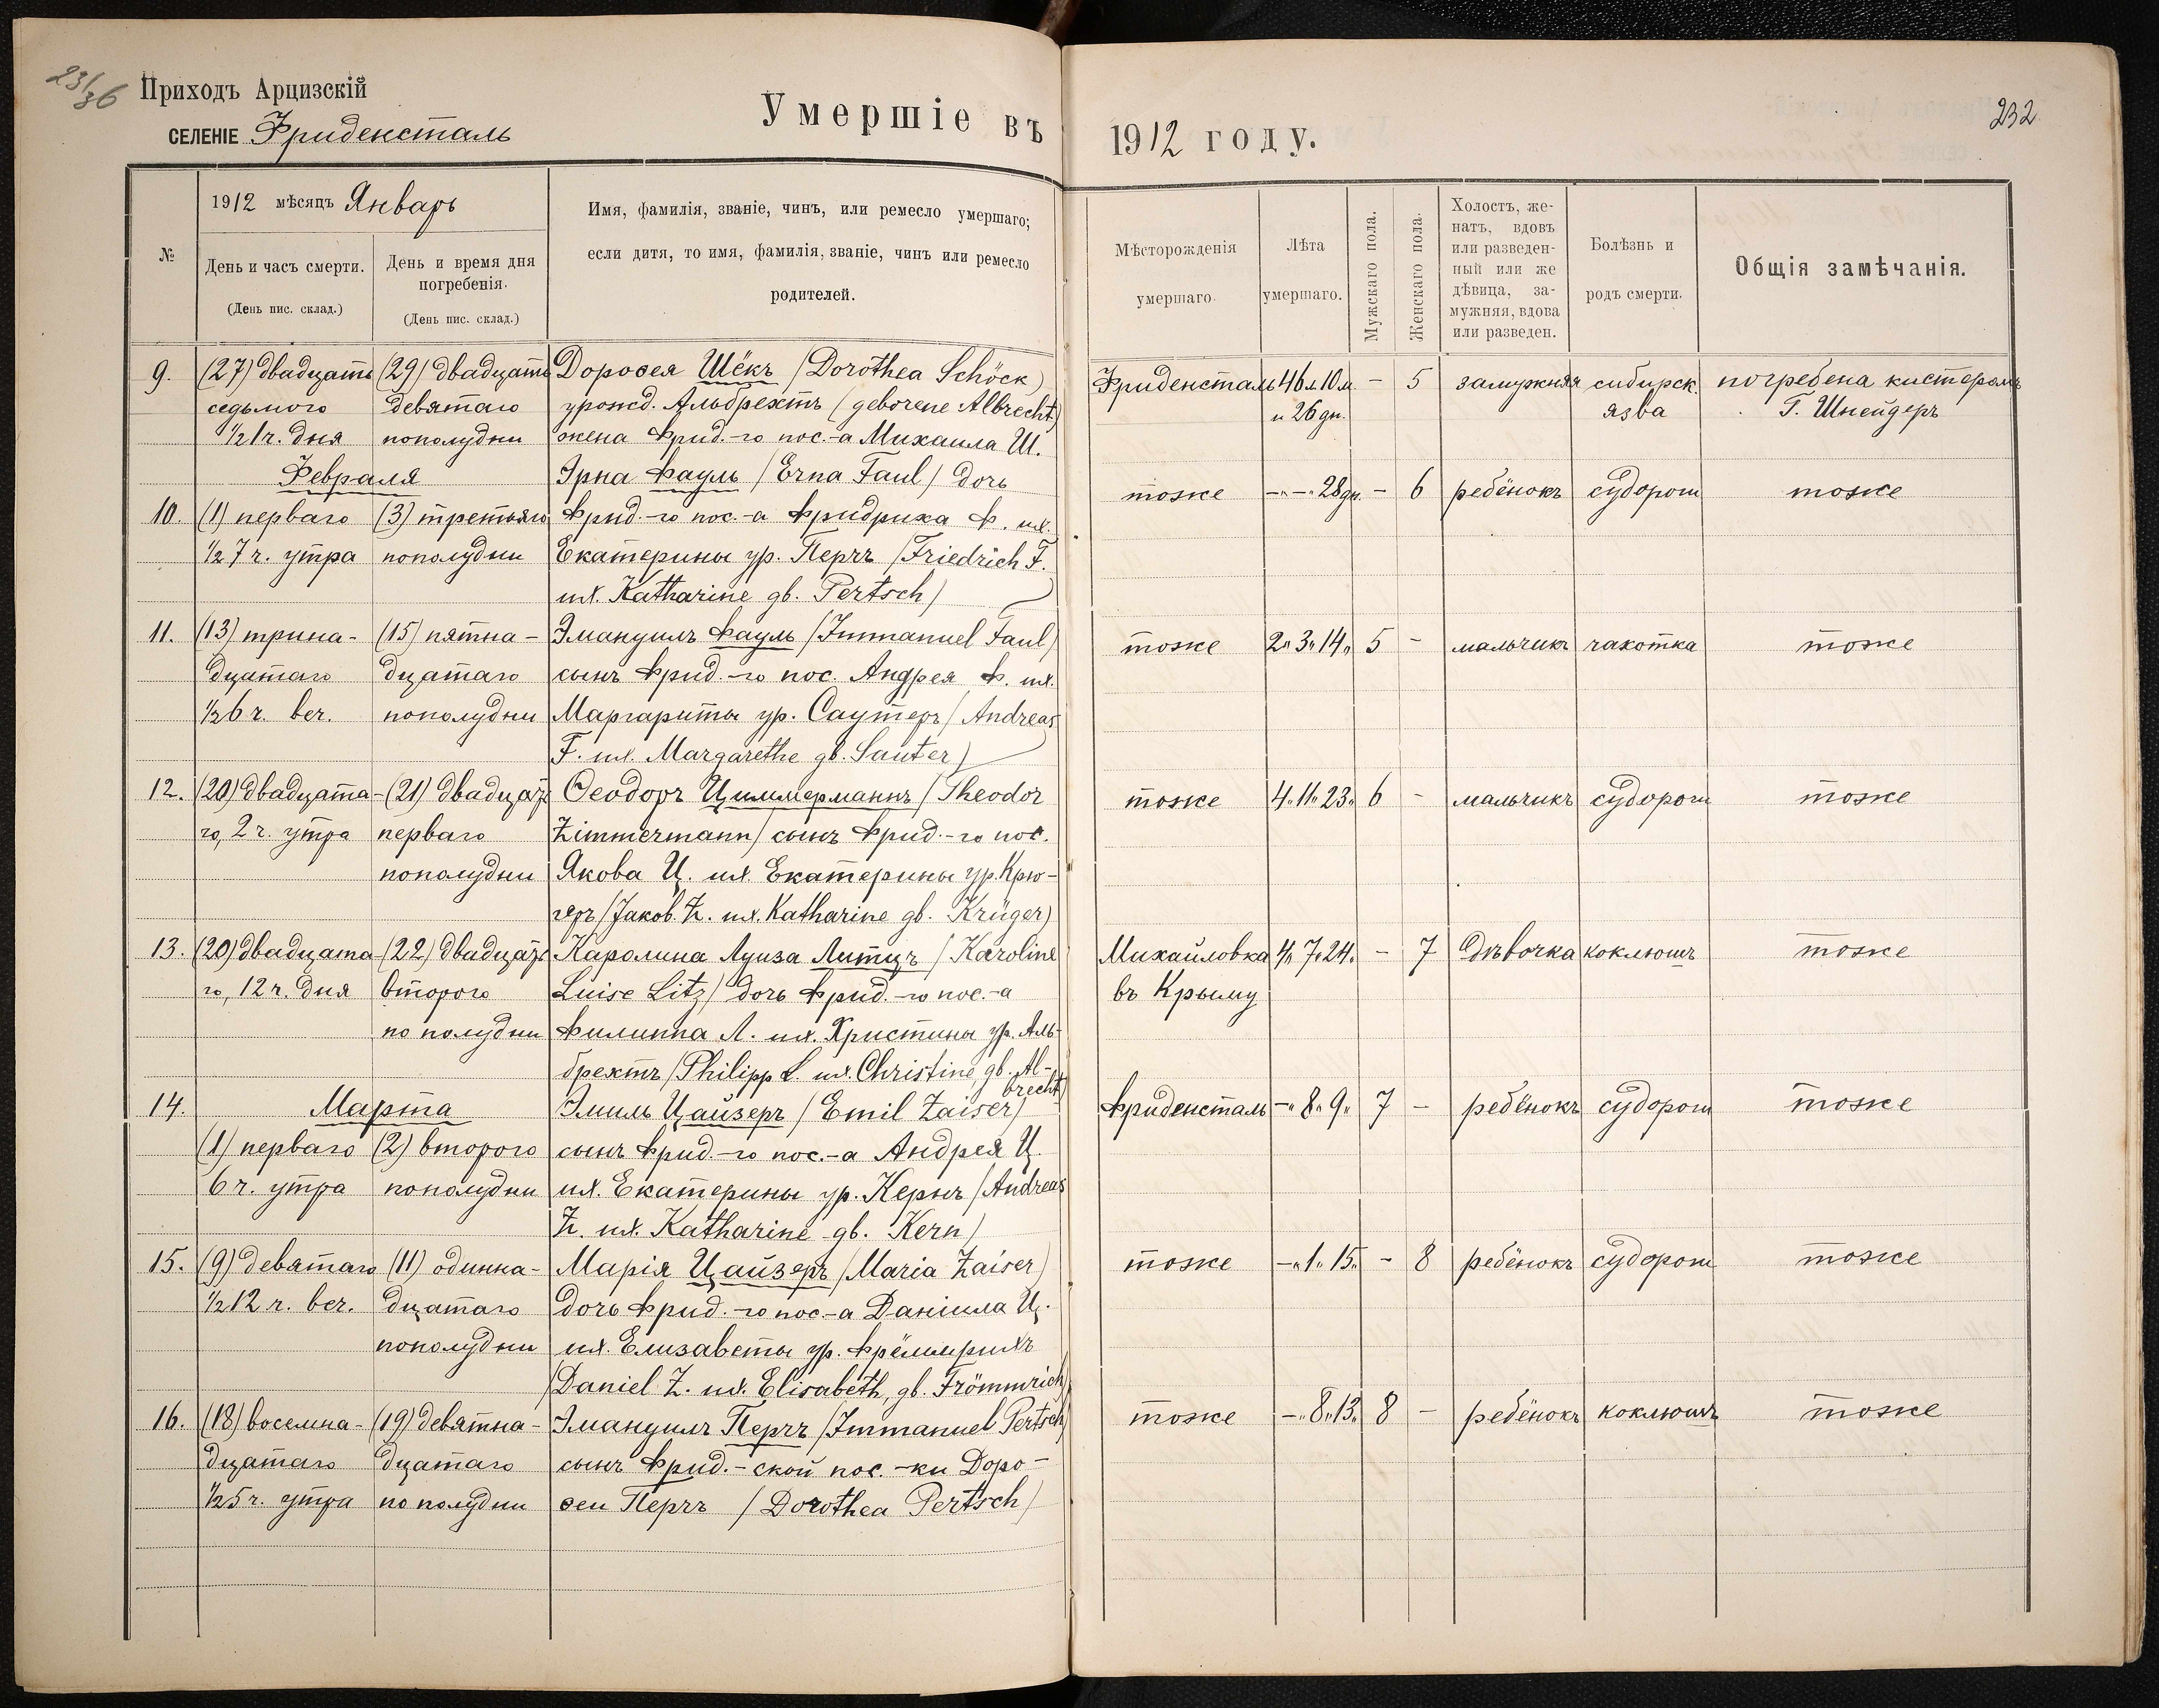 23/36
Приходъ Арцизскій
СЕЛЕНІЕ Фриденсталь
Умершіе въ
№
1912 мѣсяцъ Январь
День и часъ смерти.
(День пис. склад.)
День и время дня
погребенія.
(День пис. склад.)
Имя, фамилія, званіе, чинъ, или ремесло умершаго;
если дитя, то имя, фамилія, званіе, чинъ или ремесло
родителей.
9. (27) двадцать (29) двадцать Доровея Шёкъ (Dorothea Schöck)
седьмого девятаго урожд. Альбрехтъ (geborene Albrecht)
½1ч. дня пополудни жена Фрид.-го пос.-а Михаила Ш.
Февраля Эрна Фауль (Erna Faul) дочь
10. (1) перваго (3) третьяго Фрид.-го пос.-а Фридриха Ф. и х.
½7ч. утра пополудни Екатерины ур. Перчъ (Friedrich F.
их. Katharine gb. Pertsch)
11. (13) трина- (15) пятна- Эмануилъ Фауль (Immanuel Faul)
дцатаго дцатаго сынъ Фрид.-го пос. Андрея Ф. их.
½6ч. веч. пополудни Маргариты ур. Саутеръ (Andreas
F. их. Margarethe gb. Sauter)
12. (20) двадцата- (21) двадцать Ѳеодоръ Циммерманнъ (Theodor
го, 2ч. утра перваго Zimmermann) сынъ Фрид.-го пос.
пополудни Якова Ц. их. Екатерины ур. Крю-
геръ (Jakob. Z. их. Katharine gb. Krüger)
13. (20) двадцата (22) двадцать Каролина Луиза Литцъ (Karoline
го, 12ч. дня второго Luise Litz) дочь Фрид.-го пос.-а
по полудни Филиппа Л. их. Христины ур. Аль-
брехтъ (Philipp L. их. Christine, gb. Al-
brecht)
14. Марта Эмиль Цайзеръ (Emil Zaiser)
(1) перваго (2) второго сынъ Фрид.-го пос.-а Андрея Ц.
6ч. утра пополудни их. Екатерины ур. Кернъ (Andreas
Z. их. Katharine gb. Kern)
15. (9) девятаго (11) одинна- Марія Цайзеръ (Maria Zaiser)
½12ч. веч. дцатаго дочь Фрид.-го пос.-а Даніила Ц.
пополудни их. Елизаветы ур. Фрёммрихъ
(Daniel Z. их. Elisabeth, gb. Frömmrich)
16. (18) восемна- (19) девятна- Эмануилъ Перчъ (Immanuel Pertsch)
дцатаго дцатаго сынъ Фрид.-ской пос.-ки Доро-
½5ч. утра по полудни веи Перчъ (Dorothea Pertsch)
232
1912 году.
Мѣсторожденія
умершаго.
Лѣта
умершаго.
Мужскаго пола.
Женскаго пола.
Холостъ, же-
натъ, вдовъ
или разведен-
ный или же
дѣвица, за-
мужняя, вдова
или разведен.
Болѣзнь и
родъ смерти.
Общія замѣчанія.
Фриденсталь 46л.10м. - 5 замужняя сибирск. погребена кистеромъ
и 26дн. язва Г. Шнейдеръ
тоже -"-"28дн. - 6 ребёнокъ судороги тоже
тоже 2"3"14" 5 - мальчикъ чахотка тоже
тоже 4"11"23" 6 - мальчикъ судороги тоже
Михайловка 4"7"24" - 7 дѣвочка коклюшъ тоже
въ Крыму
Фриденсталь -"8"9" 7 - ребёнокъ судороги тоже
тоже -"1"15" - 8 ребёнокъ судороги тоже
тоже -"8"13" 8 - ребёнокъ коклюшъ тоже